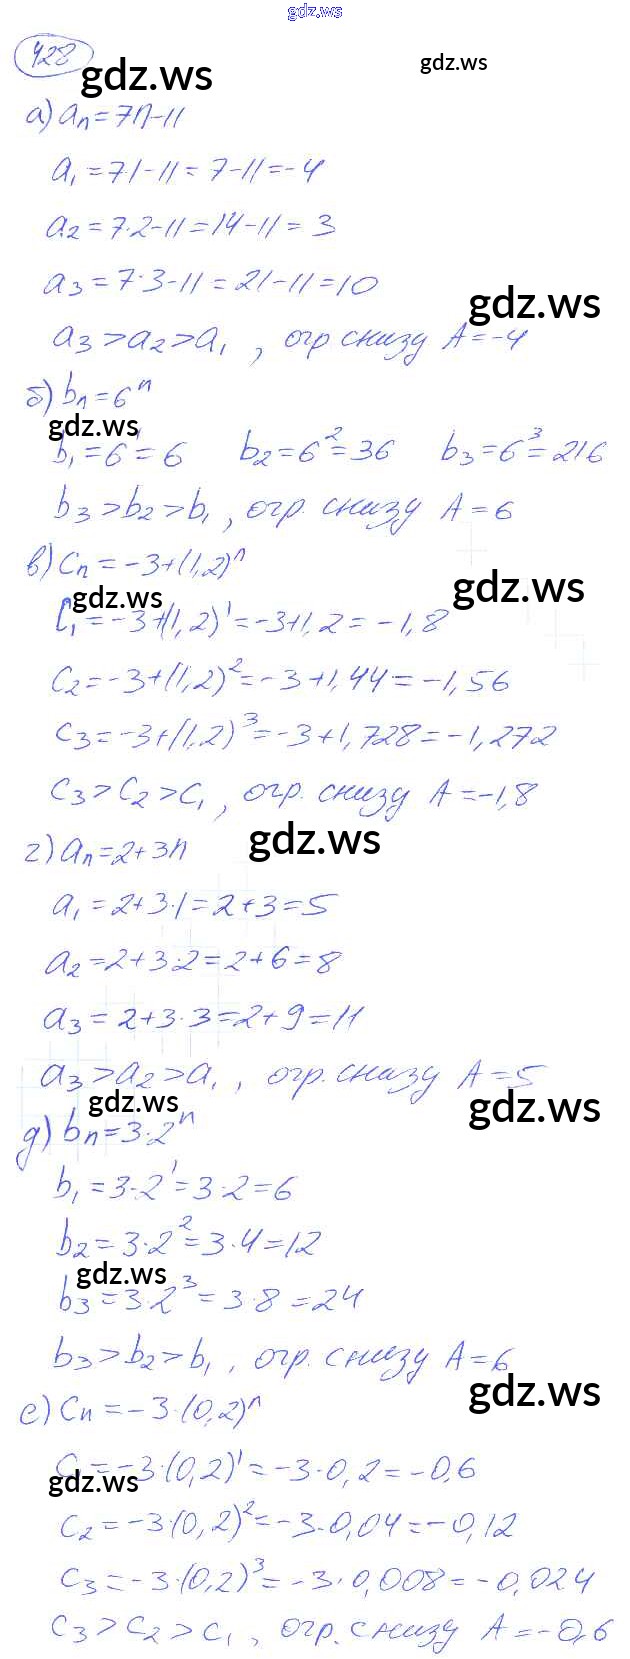 gdz.ws
428
gdz.ws
gdz.ws
а) aₙ = 7n - 11
a₁ = 7·1 - 11 = 7 - 11 = -4
a₂ = 7·2 - 11 = 14 - 11 = 3
a₃ = 7·3 - 11 = 21 - 11 = 10
gdz.ws
a₃ > a₂ > a₁ , огр снизу A = -4
б) bₙ = 6ⁿ
gdz.ws
b₁ = 6¹ = 6 b₂ = 6² = 36 b₃ = 6³ = 216
b₃ > b₂ > b₁ , огр. снизу A = 6
в) cₙ = -3 + (1,2)ⁿ
gdz.ws
gdz.ws
c₁ = -3 + (1,2)¹ = -3 + 1,2 = -1,8
c₂ = -3 + (1,2)² = -3 + 1,44 = -1,56
c₃ = -3 + (1,2)³ = -3 + 1,728 = -1,272
c₃ > c₂ > c₁ , огр. снизу A = -1,8
gdz.ws
г) aₙ = 2 + 3n
a₁ = 2 + 3·1 = 2 + 3 = 5
a₂ = 2 + 3·2 = 2 + 6 = 8
a₃ = 2 + 3·3 = 2 + 9 = 11
a₃ > a₂ > a₁ , огр. снизу A = 5
gdz.ws
gdz.ws
д) bₙ = 3·2ⁿ
b₁ = 3·2¹ = 3·2 = 6
b₂ = 3·2² = 3·4 = 12
gdz.ws
b₃ = 3·2³ = 3·8 = 24
b₃ > b₂ > b₁ , огр. снизу A = 6
gdz.ws
е) cₙ = -3·(0,2)ⁿ
c₁ = -3·(0,2)¹ = -3·0,2 = -0,6
gdz.ws
c₂ = -3·(0,2)² = -3·0,04 = -0,12
c₃ = -3·(0,2)³ = -3·0,008 = -0,024
c₃ > c₂ > c₁ , огр. снизу A = -0,6